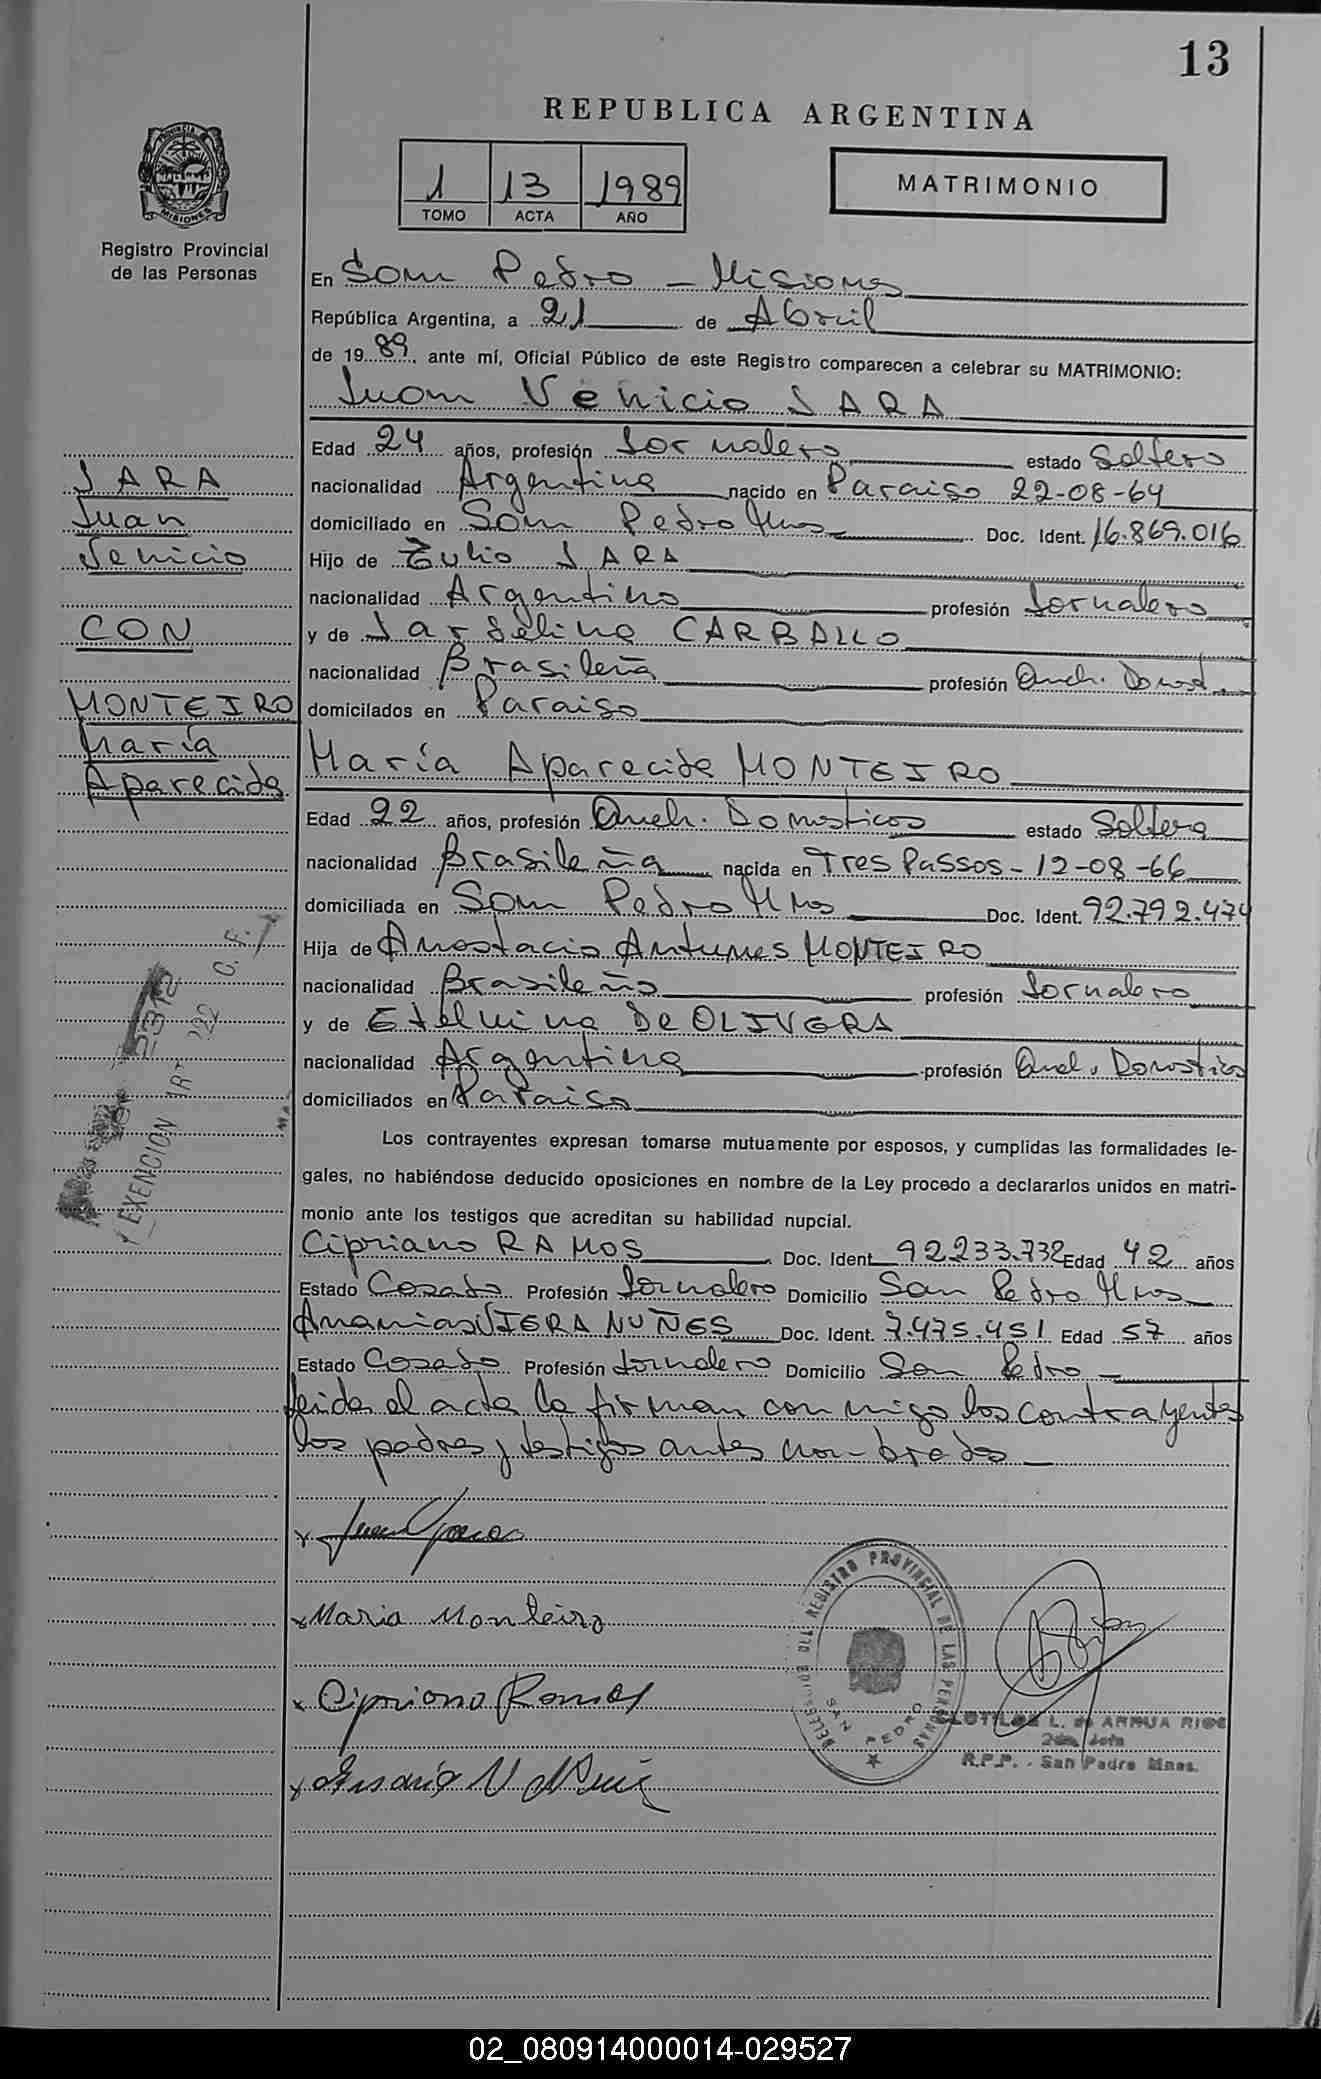 13
REPUBLICA ARGENTINA
1 13 1989
TOMO ACTA AÑO
MATRIMONIO
PROVINCIA DE
MISIONES
Registro Provincial
de las Personas
En San Pedro - Misiones
República Argentina, a 21 de Abril
de 1989, ante mí, Oficial Público de este Registro comparecen a celebrar su MATRIMONIO:
Juan Venicio JARA
Edad 24 años, profesión Jornalero estado Soltero
nacionalidad Argentina nacido en Paraiso 22-08-64
domiciliado en San Pedro Mnes Doc. Ident. 16.869.016
Hijo de Zulio JARA
nacionalidad Argentino profesión Jornalero
y de Jarselina CARBALLO
nacionalidad Brasileña profesión Queh. Domest.
domicilados en Paraiso
JARA
Juan
Venicio
CON
MONTEIRO
María
Aparecida
María Aparecida MONTEIRO
Edad 22 años, profesión Queh. Domesticos estado Soltera
nacionalidad Brasileña nacida en Tres Passos - 12-08-66
domiciliada en San Pedro Mnes Doc. Ident. 92.792.474
Hija de Anastacio Antunes MONTEIRO
nacionalidad Brasileño profesión Jornalero
y de Etelvina De OLIVERA
nacionalidad Argentina profesión Queh. Domestico
domiciliados en Paraiso
EXENCION ART 222 C. F.
Los contrayentes expresan tomarse mutuamente por esposos, y cumplidas las formalidades le-
gales, no habiéndose deducido oposiciones en nombre de la Ley procedo a declararlos unidos en matri-
monio ante los testigos que acreditan su habilidad nupcial.
Cipriano RAMOS Doc. Ident 92.233.732 Edad 42 años
Estado Casado Profesión Jornalero Domicilio San Pedro Mnes
Ananias VIERA NUÑES Doc. Ident. 7.475.451 Edad 57 años
Estado Casado Profesión Jornalero Domicilio San Pedro
Leida el acta la firman conmigo los contrayentes
los padres y testigos antes nombrados
x Juan Jara
x Maria Monteiro
x Cipriano Ramos
x
DELEGACION DEL REGISTRO PROVINCIAL DE LAS PERSONAS
SAN PEDRO
CLOTILDE L. de ARRUA RIOS
2da. Jefa
R.P.P. - San Pedro Mnes.
02_080914000014-029527